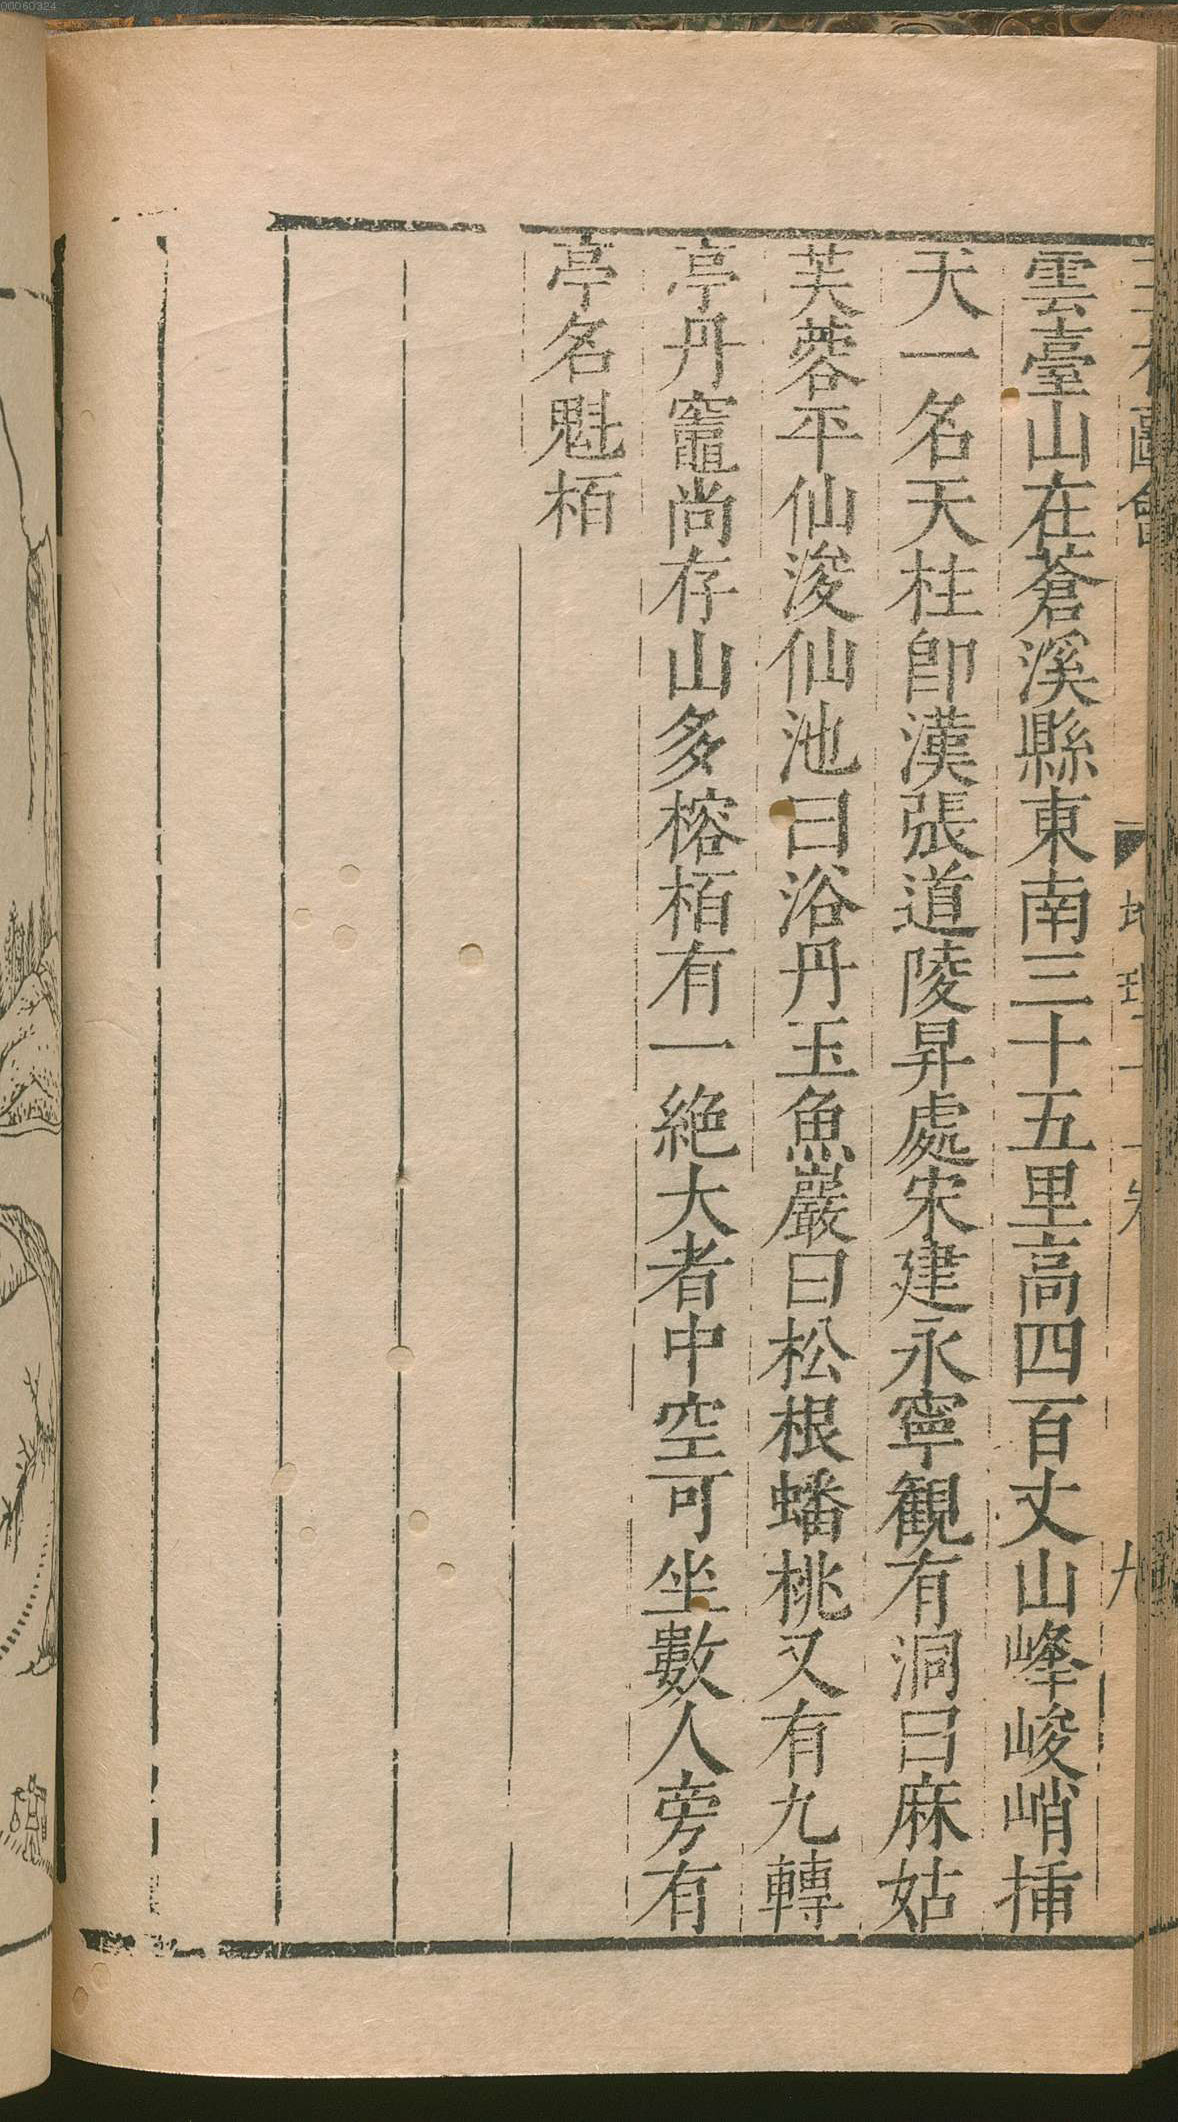 00060324
三才圖會 地理十一卷 九
雲臺山在蒼溪縣東南三十五里高四百丈山峰峻峭挿
天一名天柱即漢張道陵昇處宋建永寧観有洞曰麻姑
芙蓉平仙浚仙池曰浴丹玉魚巖曰松根蟠桃又有九轉
亭丹竈尚存山多榕栢有一絶大者中空可坐數人旁有
亭名魁栢